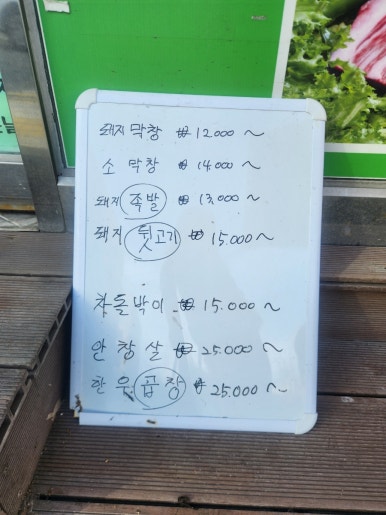 돼지 막창 ₩ 12.000 ~
소 막창 ₩ 14.000 ~
돼지 족발 ₩ 13.000 ~
돼지 뒷고기 ₩ 15.000 ~
차돌박이 ₩ 15.000 ~
안창살 ₩ 25.000 ~
한우 곱창 ₩ 25.000 ~